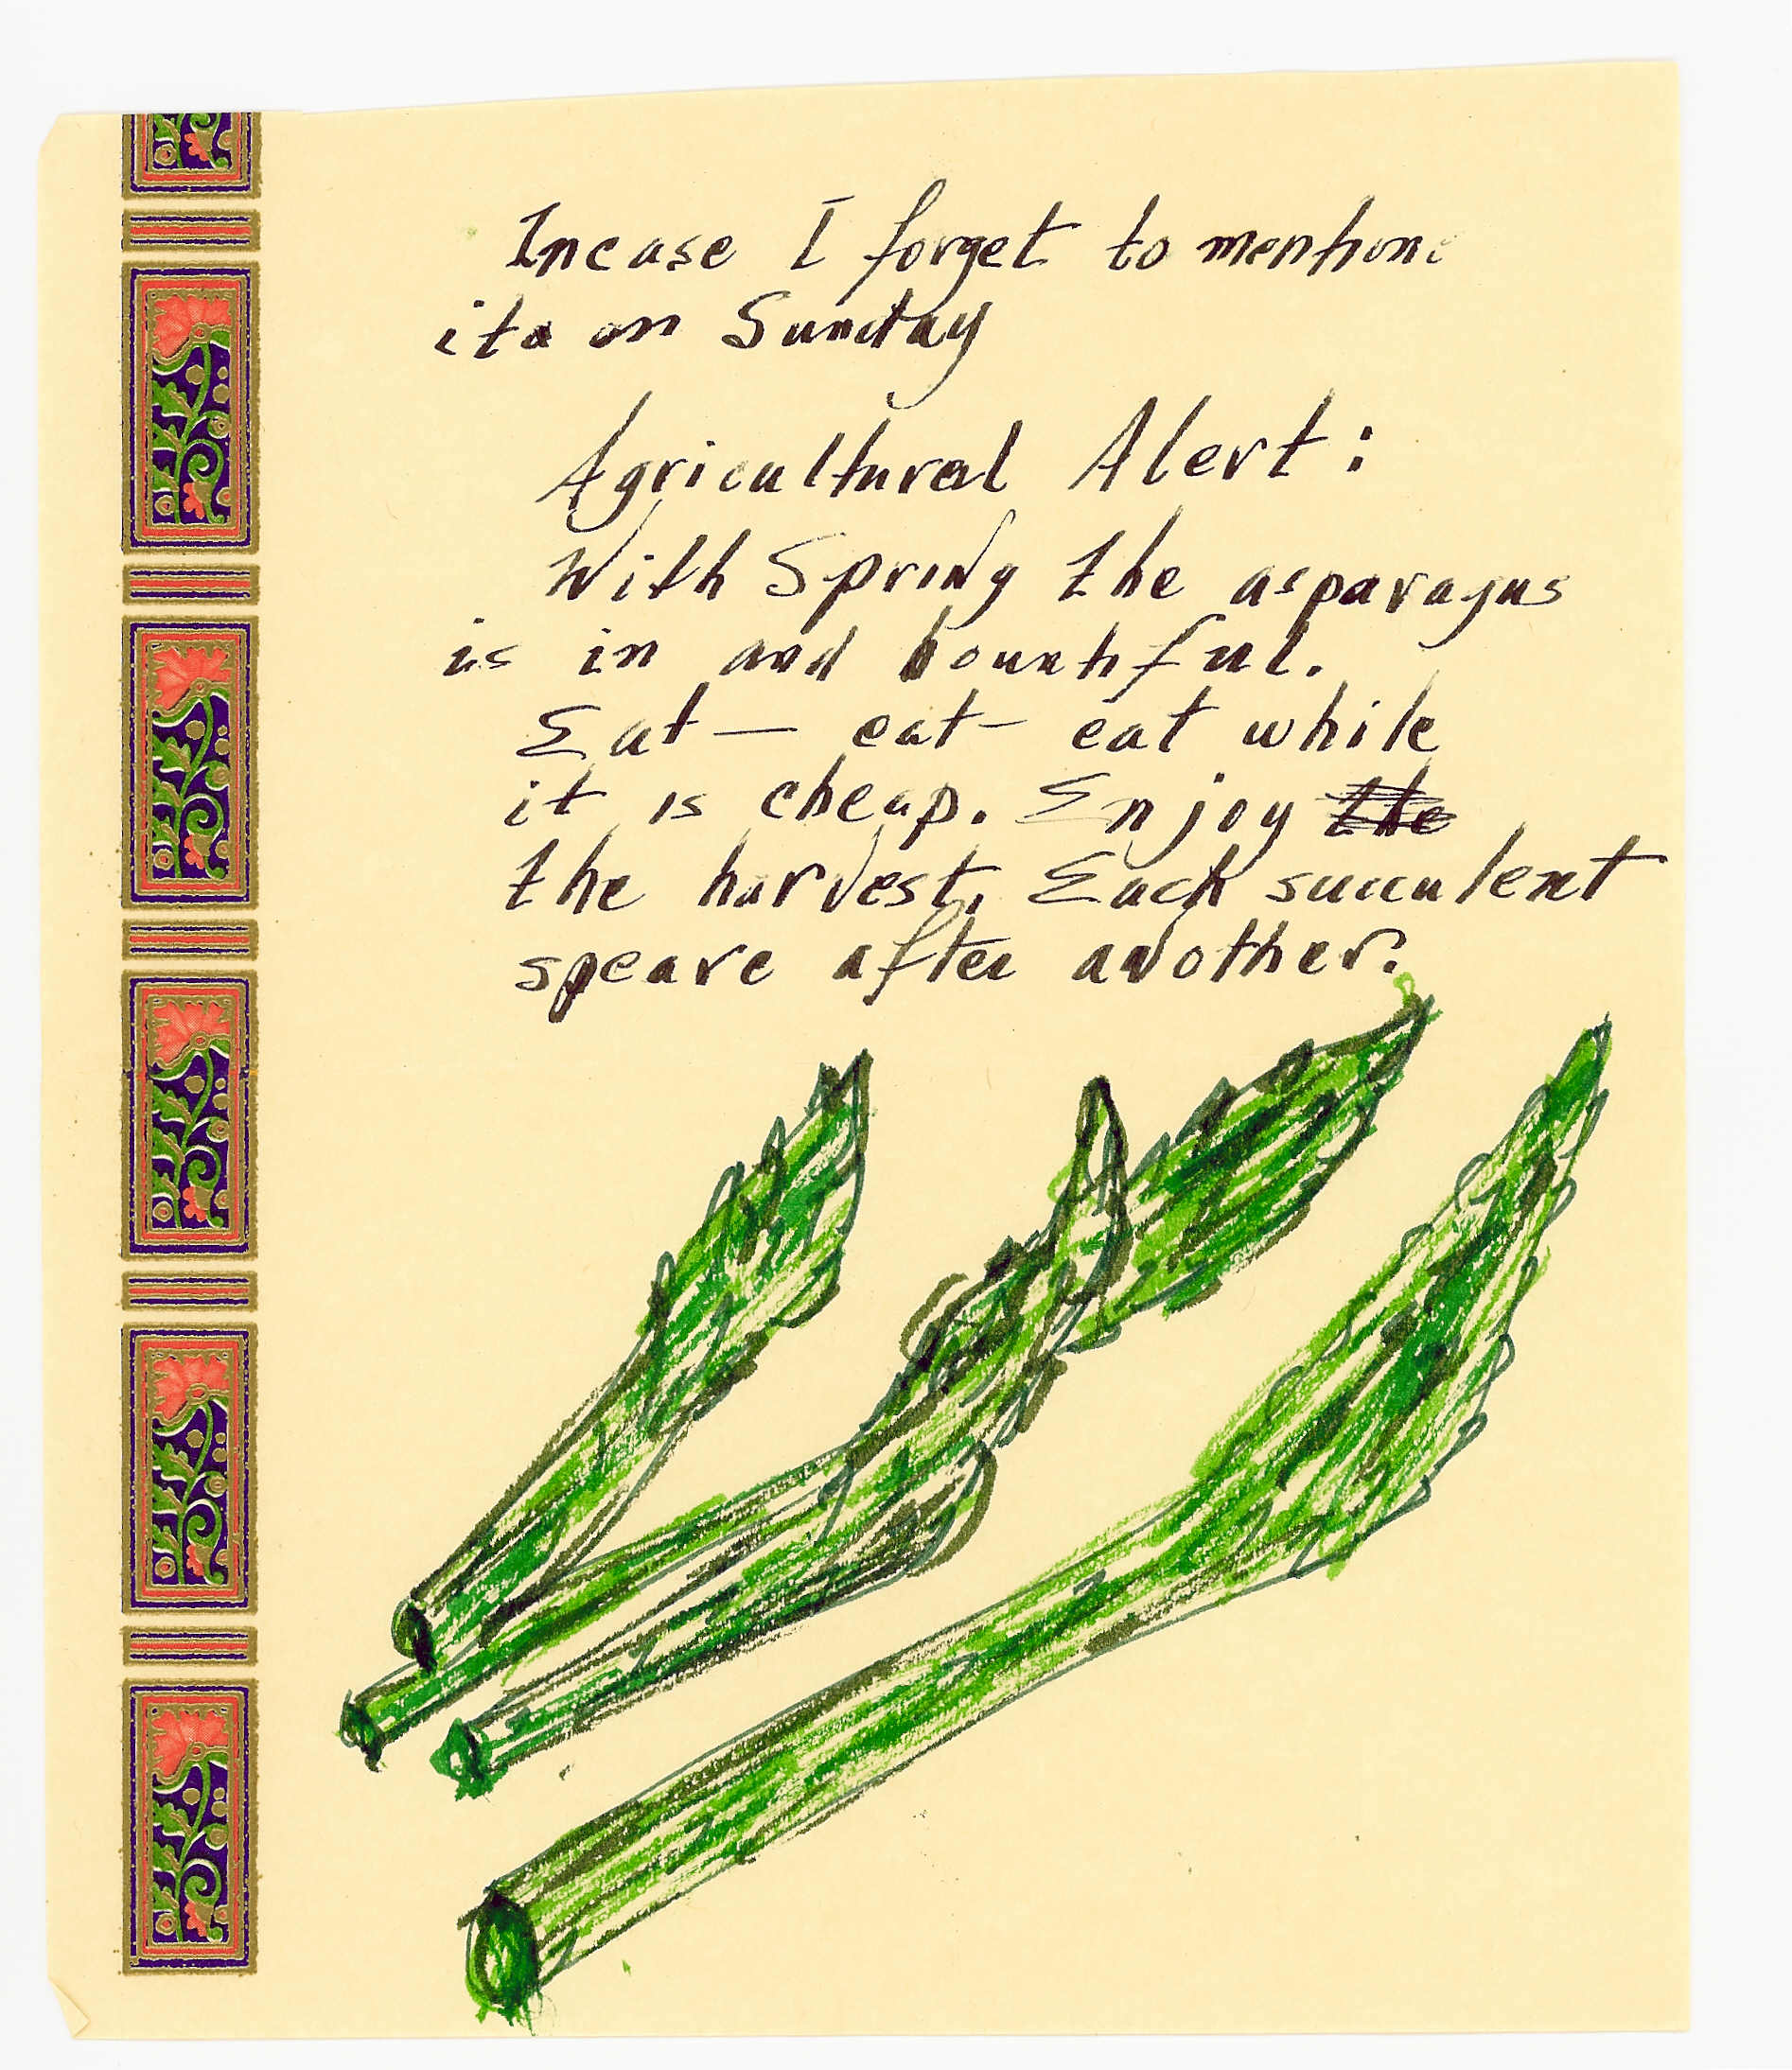 Incase I forget to mention
it on Sunday
Agricultural Alert:
With Spring the asparagus
is in and bountiful.
Eat — eat — eat while
it is cheap. Enjoy the
the harvest. Each succulent
speare after another.